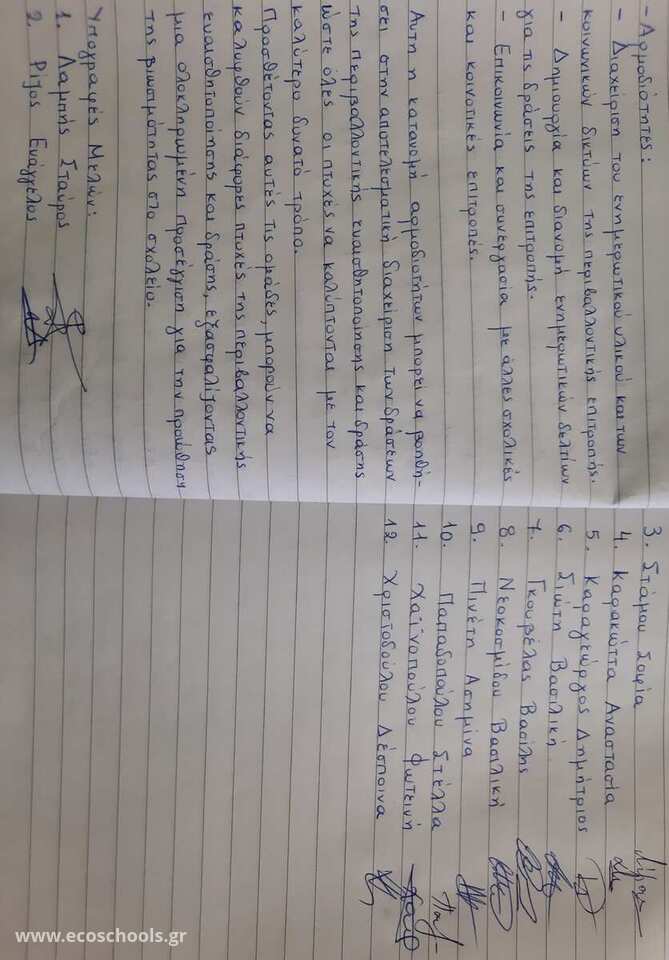 - Αρμοδιότητες:
- Διαχείριση του ενημερωτικού υλικού και των
κοινωνικών δικτύων της περιβαλλοντικής επιτροπής.
- Δημιουργία και διανομή ενημερωτικών δελτίων
για τις δράσεις της επιτροπής.
- Επικοινωνία και συνεργασία με άλλες σχολικές
και κοινοτικές επιτροπές.
Αυτή η κατανομή αρμοδιοτήτων μπορεί να βοηθή-
σει στην αποτελεσματική διαχείριση των δράσεων
της περιβαλλοντικής ευαισθητοποίησης και δράσης
ώστε όλες οι πτυχές να καλύπτονται με τον
καλύτερο δυνατό τρόπο.
Προσθέτοντας αυτές τις ομάδες, μπορούν να
καλυφθούν διάφορες πτυχές της περιβαλλοντικής
ευαισθητοποίησης και δράσης, εξασφαλίζοντας
μια ολοκληρωμένη προσέγγιση για την προώθηση
της βιωσιμότητας στο σχολείο.
Υπογραφές Μελών:
1. Λαμπής Σταύρος
2. Ρίζος Ευάγγελος
3. Στάμου Σοφία
4. Καρακώττα Αναστασία
5. Καραγεώργος Δημήτριος
6. Σιώτη Βασιλική
7. Γκουβέλας Βασίλης
8. Νεοκοσμίδου Βασιλική
9. Πινέτη Ασημίνα
10. Παπαδοπούλου Στέλλα
11. Χαϊνοπούλου Φωτεινή
12. Χριστοδούλου Δέσποινα
www.ecoschools.gr